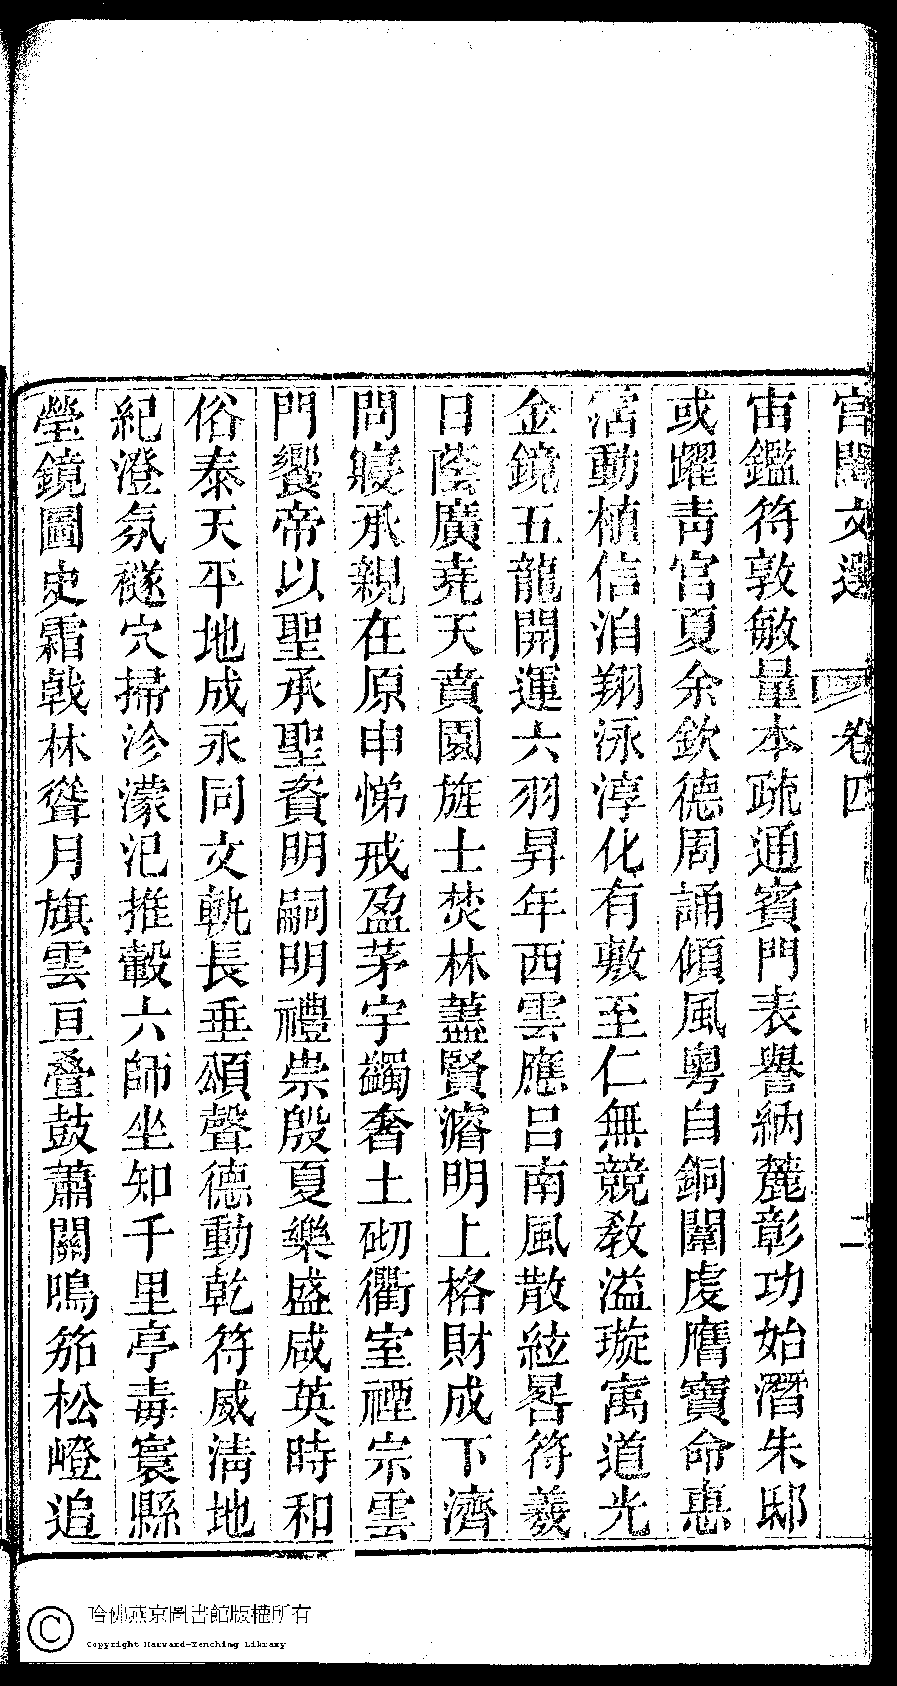 宮閨文選 卷四 二
宙鑑符敦敏量本疏通賓門表譽納麓彰功始潛朱邸
或躍靑宮夏余欽德周誦傾風粵自銅闈虔膺寶命惠
霑動植信洎翔泳淳化有敷至仁無競敎溢璇寓道光
金鏡五龍開運六羽昇年西雲應呂南風散絃晷符羲
日蔭廣堯天賁園旌士焚林藎賢濬明上格財成下濟
問寢承親在原申悌戒盈茅宇蠲奢土砌衢室禋宗雲
門饗帝以聖承聖資明嗣明禮崇殷夏樂盛咸英時和
俗泰天平地成永同文軌長垂頌聲德動乾符威淸地
紀澄氛禭穴掃沴濛汜推轂六師坐知千里亭毒寰縣
瑩鏡圖史霜戟林聳月旗雲亘疊鼓蕭關鳴笳松嶝追
哈佛燕京圖書館版權所有
Copyright Harvard-Yenching Library